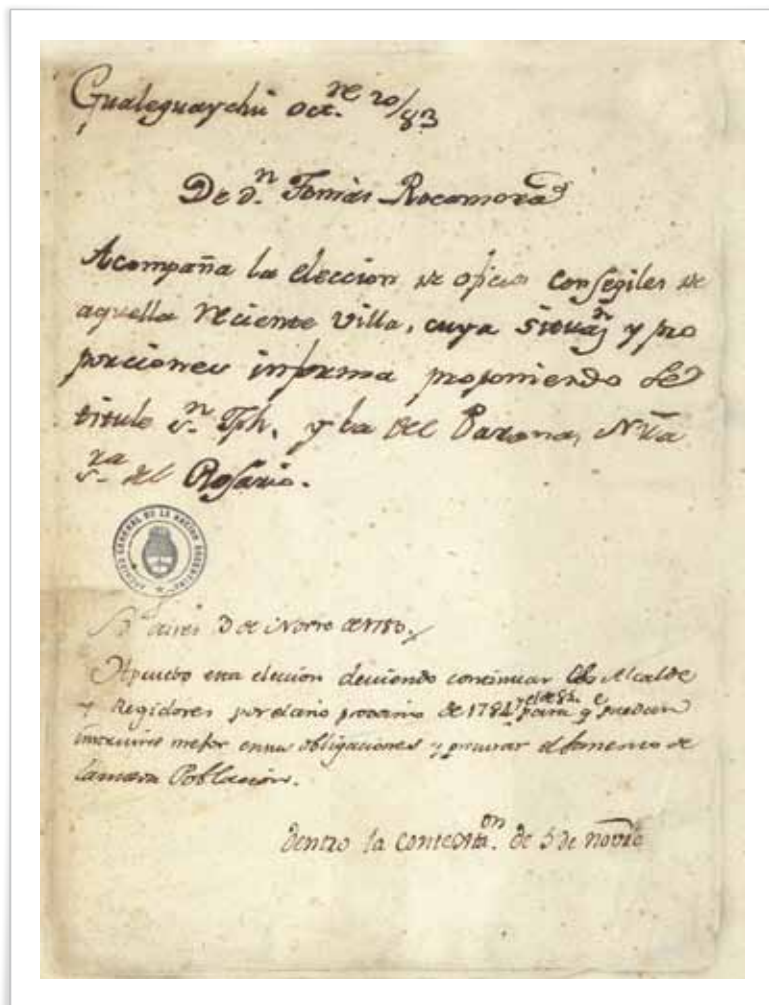 Gualeguaychú Oct.re 20/83
De d.n Tomás Rocamora
Acompaña la eleccion de oficios Consegiles de
aquella reciente Villa, cuya situaz.n y pro
porciones informa proponiendo se
titule S.n Jph, y la del Parana, Nra
S.ra del Rosario.
ARCHIVO GENERAL DE LA NACION ARGENTINA
Aires 3 de Novre de 1783.
Apruebo esta eleccion deviendo continuar los Alcalde
y Regidores por el año proximo de 1784 y el de 85. para q.e puedan
instruirse mejor en sus obligaciones y procurar el fomento de
la nueva Poblacion.
dentro la contexta.on de 5 de novre